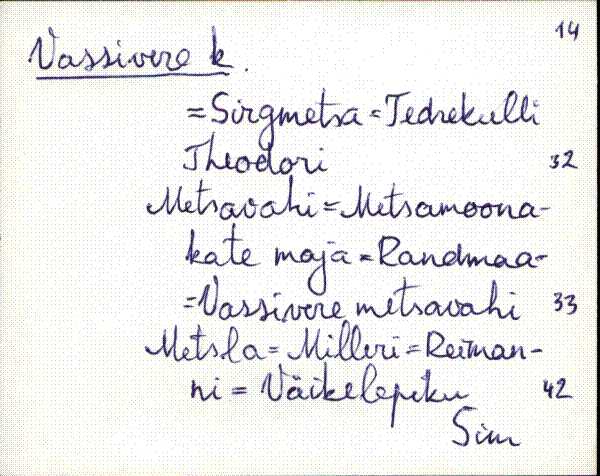 14
Vassivere k.
= Sirgmetsa = Tedrekulli
Theodori 32
Metsavahi = Metsamoona-
kate maja = Randmaa-
= Vassivere metsavahi 33
Metsla = Milleri = Reiman-
ni = Väikelepiku 42
Sim